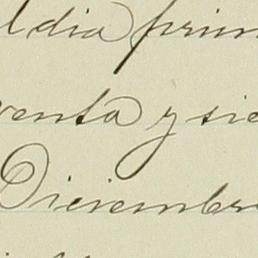 l dia prim
venta y sie
Diciembre